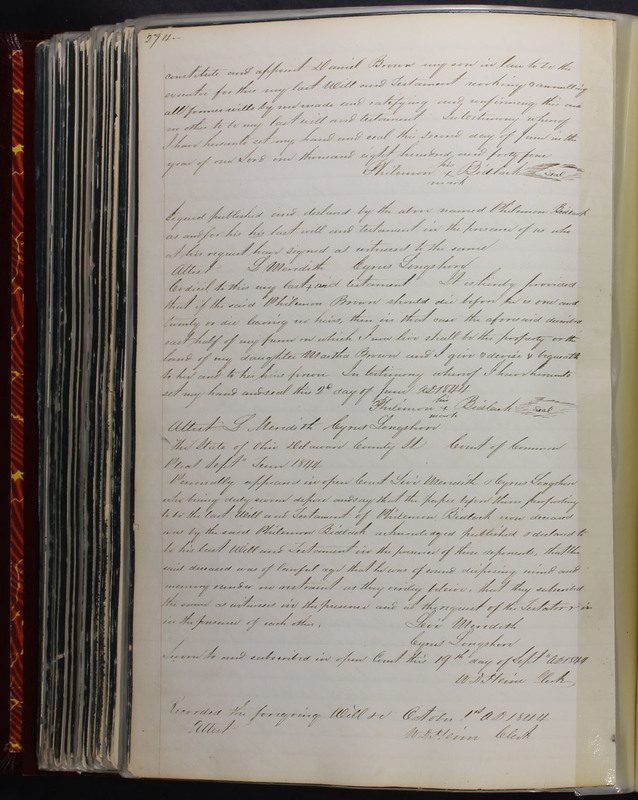 constitute and appoint Daniel Brown my son in law to be the
executor for this my last Will and Testament revoking & annulling
all former wills by me made and ratifying and confirming this and
no other to be my last will and testament In testimony whereof
I have hereunto set my hand and seal this Second day of June in the
year of our Lord one thousand eight hundred and forty four
Philemon his x mark Bidlack Seal
Signed published and declared by the above named Philemon Bidlack
as and for his last will and testament in the presence of us who
at his request have signed as witnesses to the same
Attest L Meredith Cyrus Longshore
Codicil to this my last and testament It is hereby provided
that if the said Philemon Brown should die before he is one and
twenty or die leaving no heirs, then in that case the aforesaid
east half of my farm on which I now live shall be the property or the
land of my daughter Martha Brown and I give & devise & bequeath
to her and to his heirs forever In testimony whereof I have hereunto
set my hand and seal this 2d day of June AD 1844
Philemon his x mark Bidlack Seal
Attest L Meredith Cyrus Longshore
The State of Ohio Delaware County SS Court of Common
Pleas Sept Term 1844
Personally appeared in open Court Levi Meredith & Cyrus Longshore
who being duly sworn depose and say that the paper before them purporting
to be the last Will and Testament of Philemon Bidlack now deceased
was by the said Philemon Bidlack acknowledged published & declared to
be his last Will and Testament in the presence of these deponents, that the
said deceased was of lawful age that he was of sound disposing mind and
memory & under no restraint as they verily believe, that they subscribed
the same as witnesses in the presence and at the request of the Testator & in
in the presence of each other.
Levi Meredith
Cyrus Longshore
Sworn to and subscribed in open Court this 19th day of Sept AD 1844
Clerk
Recorded the foregoing Will &c October 1st AD 1844
Attest Clerk